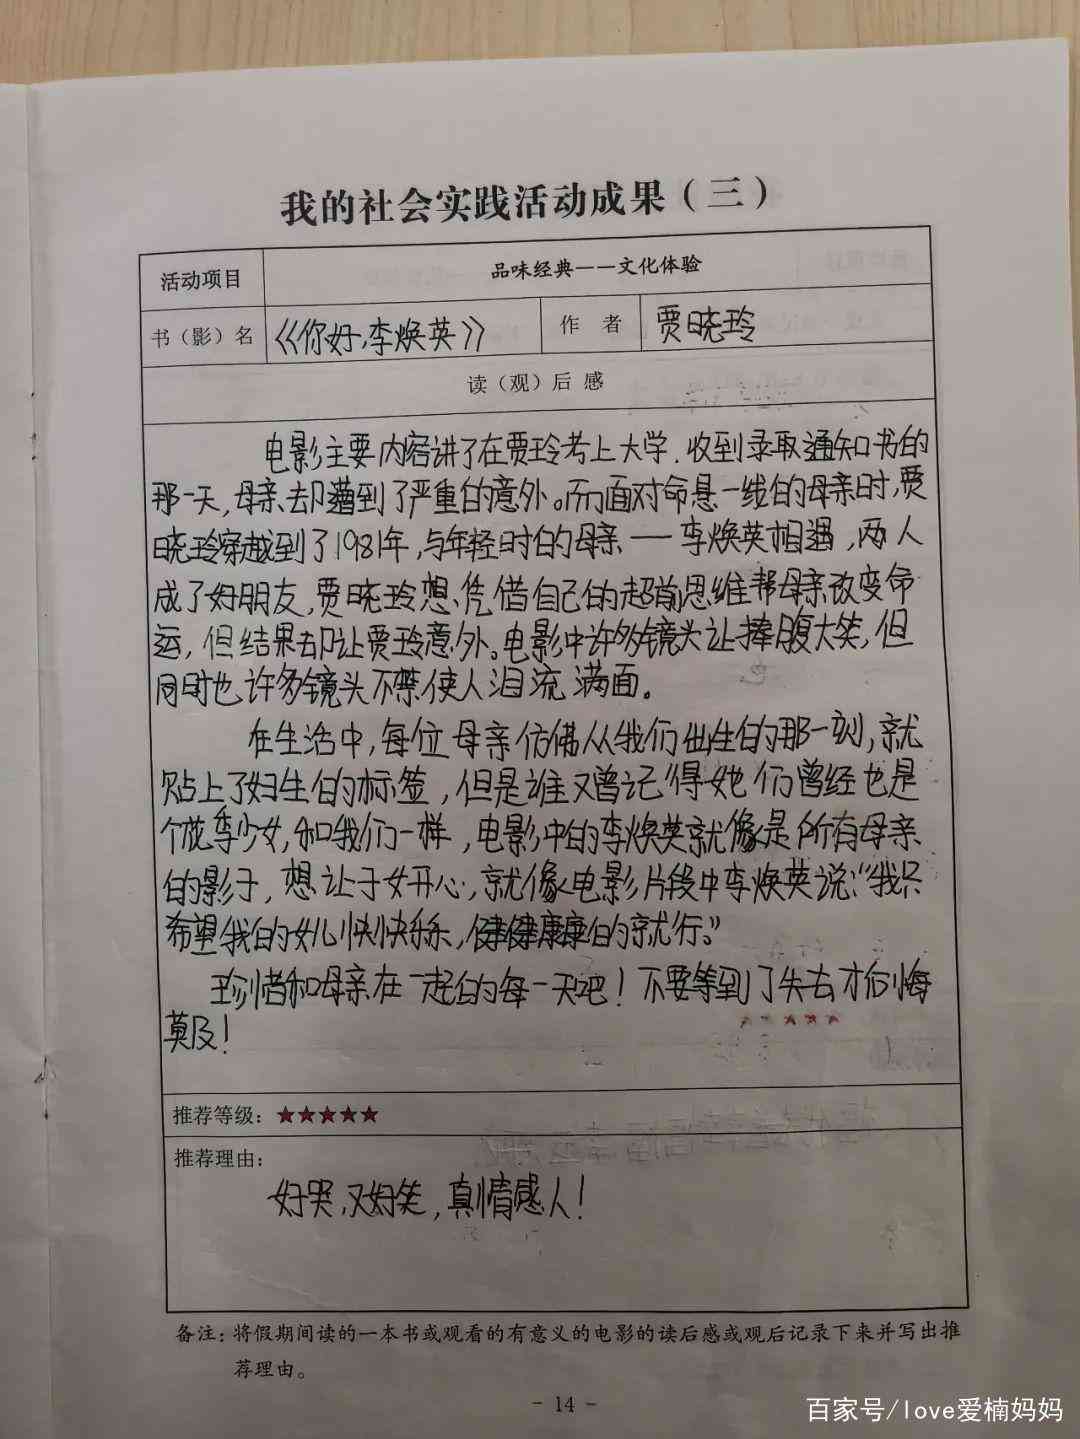 我的社会实践活动成果（三）
活动项目 品味经典——文化体验
书（影）名 《你好,李焕英》 作 者 贾晓玲
读（观）后 感
电影主要内容讲了在贾玲考上大学.收到录取通知书的
那一天,母亲却遭到了严重的意外。而面对命悬一线的母亲时,贾
晓玲穿越到了1981年,与年轻时的母亲——李焕英相遇,两人
成了好朋友,贾晓玲想凭借自己的超前思维帮母亲改变命
运,但结果却让贾玲意外。电影中许多镜头让捧腹大笑,但
同时也许多镜头不禁使人泪流满面。
在生活中,每位母亲仿佛从我们出生的那一刻,就
贴上了妇生的标签,但是谁又曾记得她们曾经也是
个花季少女,和我们一样,电影中的李焕英就像是所有母亲
的影子,想让子女开心,就像电影片段中李焕英说:“我只
希望我的女儿快快乐乐,健健康康的就行。”
珍惜和母亲在一起的每一天吧!不要等到了失去才后悔
莫及!
推荐等级：★★★★★
推荐理由：
好哭,又好笑,真情感人!
备注：将假期间读的一本书或观看的有意义的电影的读后感或观后记录下来并写出推
荐理由。
- 14 -
百家号/love爱楠妈妈